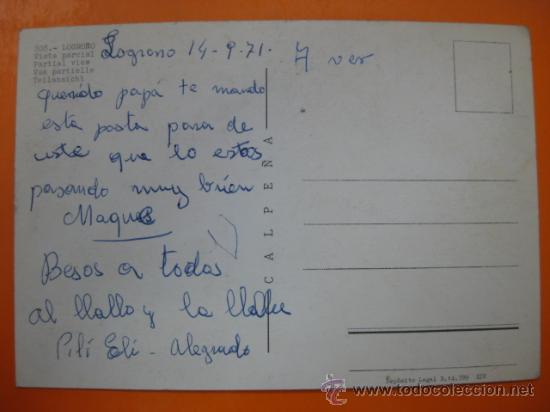 308.- LOGROÑO
Vista parcial
Partial view
Vue partielle
Teilansicht
Logrono 14-9-71.
A ver
querido papá te mando
esta posta para de
uste que lo estas
pasando muy bien
Maque
Besos a todos
al llallo y la llalla
Pili Eli - Alegrado
CALPEÑA
Depósito Legal B.14.799 XIV
todocoleccion.net